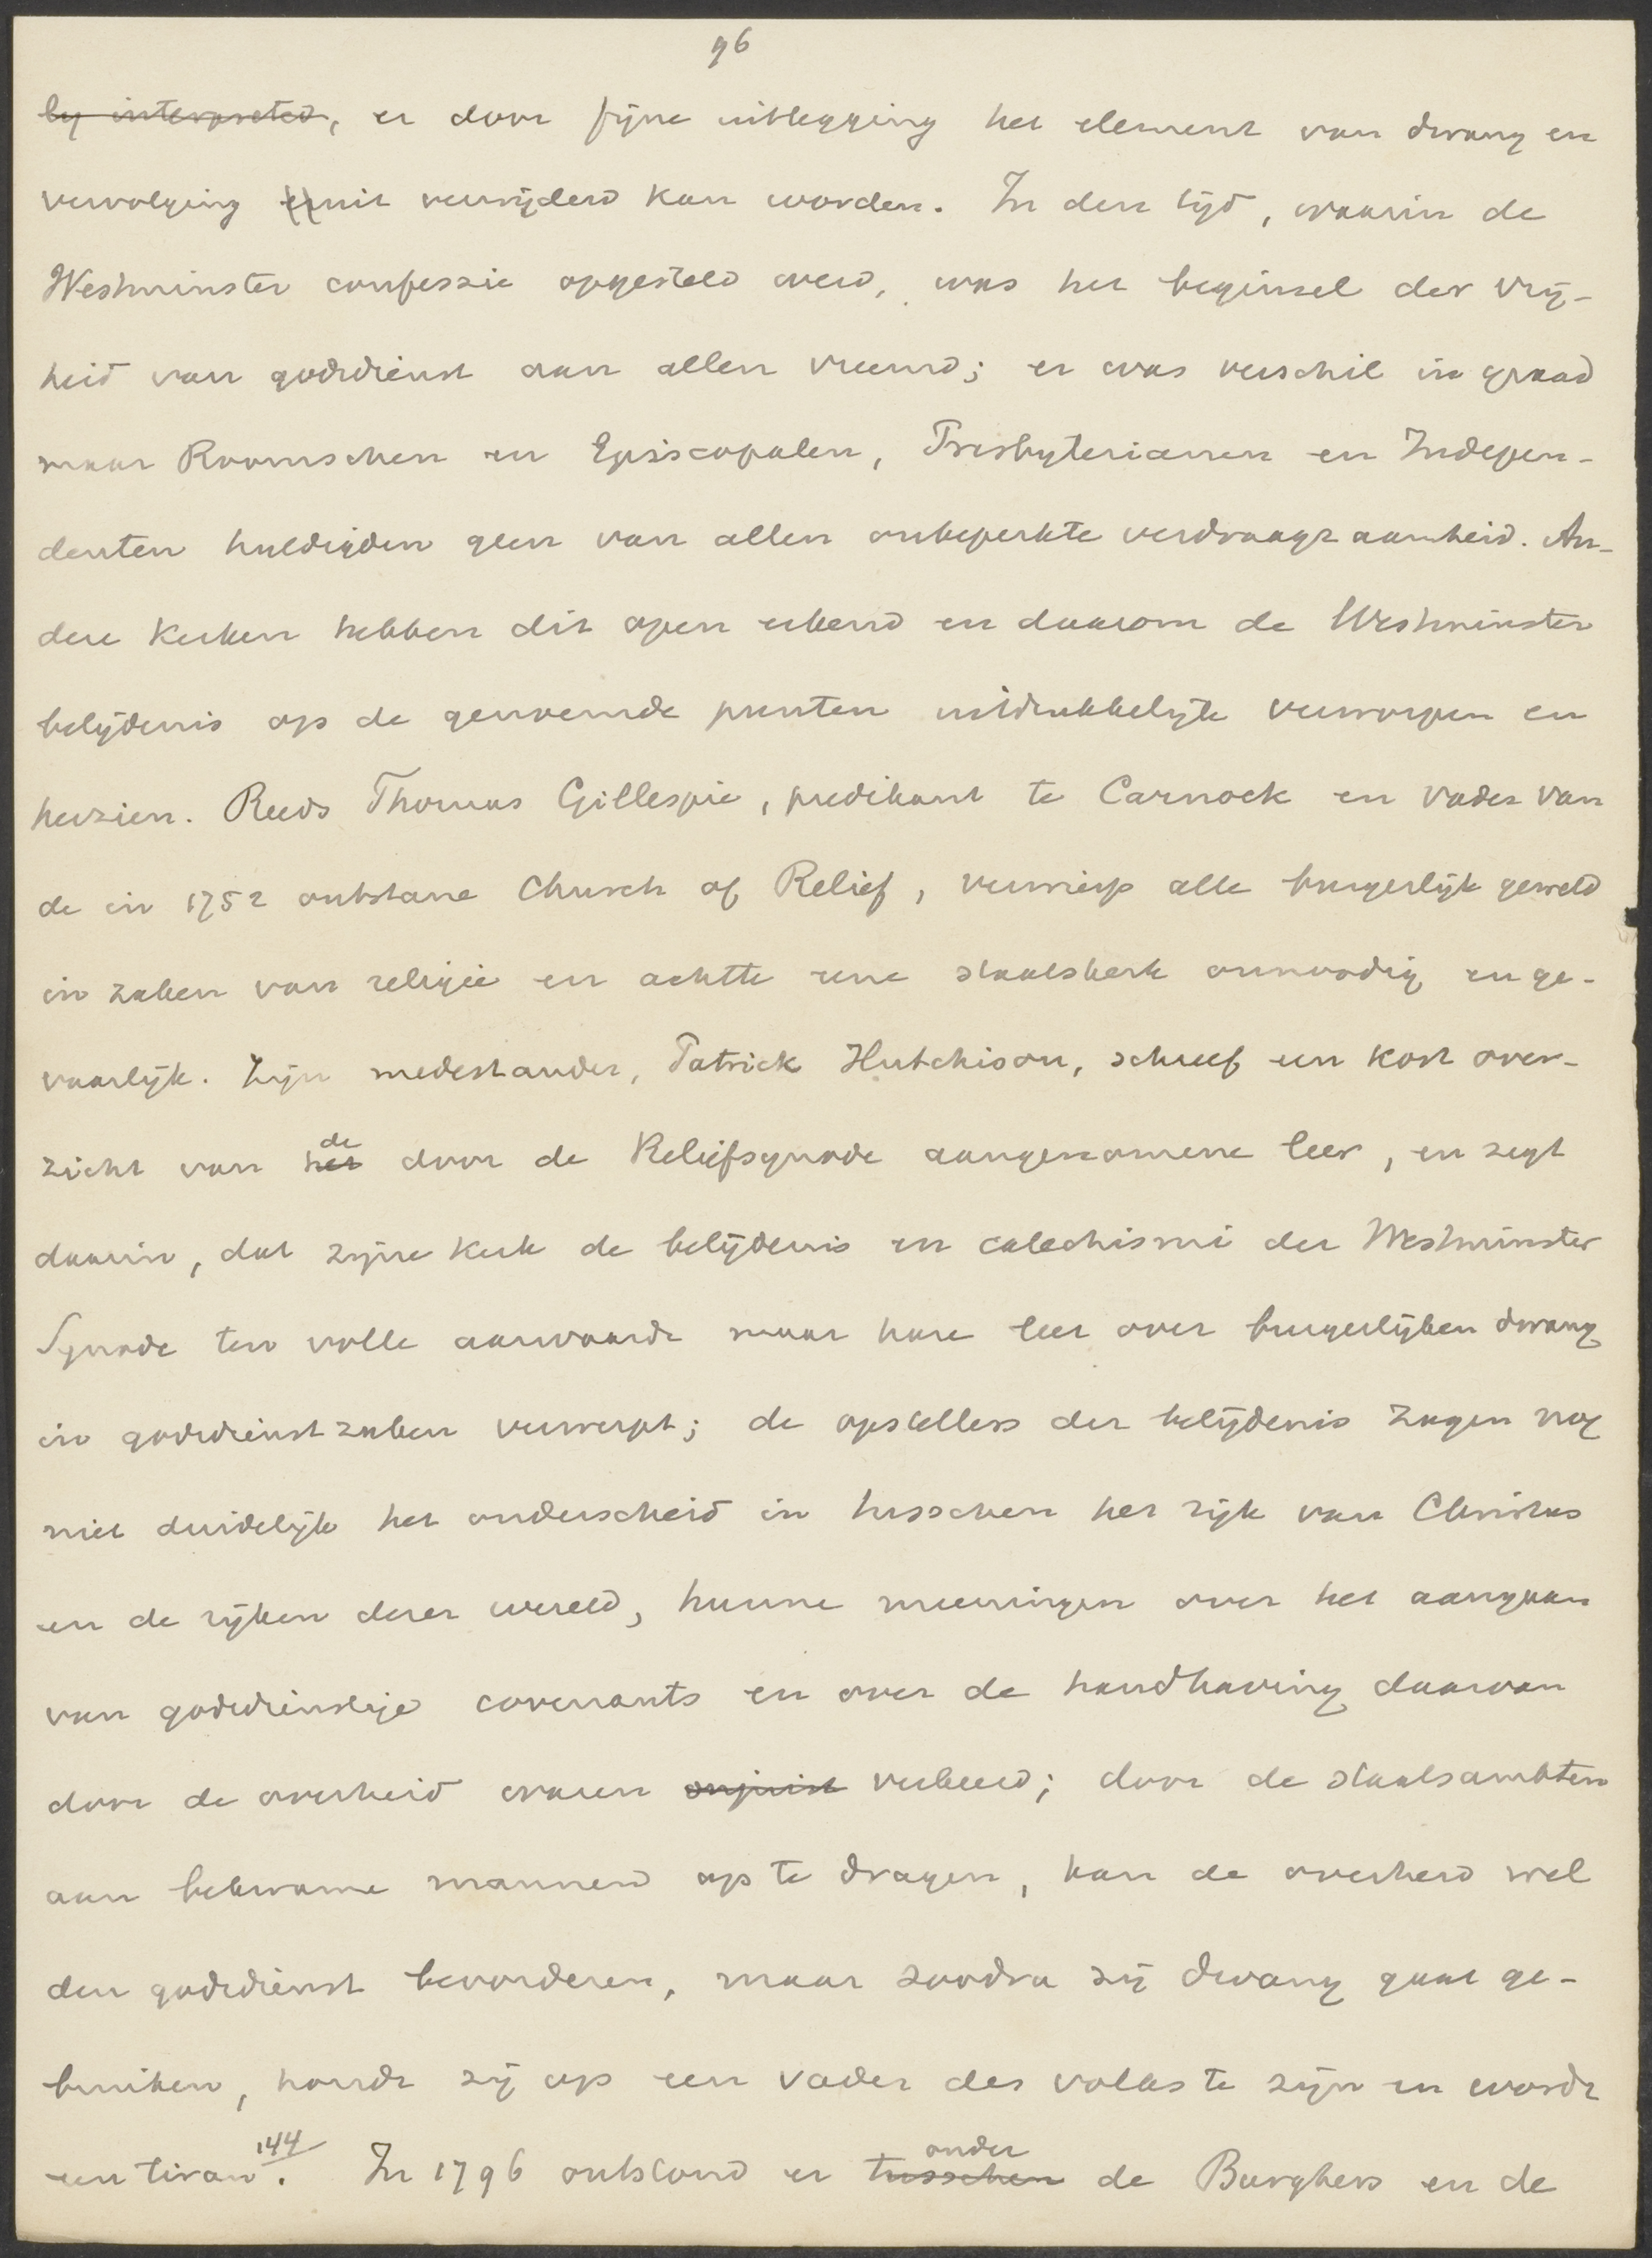 96
by interpreted, er door fijne uitlegging het element van dwang en
vervolging er uit verwijderd kan worden. In den tijd, waarin de
Westminster confessie opgesteld werd, was het beginsel der vrij-
heid van godsdienst aan allen vreemd; er was verschil in graad
maar Roomschen en Episcopalen, Presbyterianen en Indepen-
denten huldigden geen van allen onbeperkte verdraagzaamheid. An-
dere kerken hebben dit open erkend en daarom de Westminster
belijdenis op de genoemde punten uitdrukkelijk verworpen en
herzien. Reeds Thomas Gillespie, predikant te Carnock en vader van
de in 1752 ontstane Church of Relief, verwierp alle burgerlijk geweld
in zaken van religie en achtte eene staatskerk onnoodig en ge-
vaarlijk. Zijn medestander, Patrick Hutchison, schreef een kort over-
zicht van het de door de Reliefsynode aangenomene leer, en zegt
daarin, dat zijne kerk de belijdenis en catechismi der Westminster
Synode ten volle aanvaardt maar hare leer over burgerlijken dwang
in godsdienstzaken verwerpt; de opstellers der belijdenis zagen nog
niet duidelijk het onderscheid in tusschen het rijk van Christus
en de rijken dezer wereld, hunne meeningen over het aangaan
van godsdienstige covenants en over de handhaving daarvan
door de overheid waren onjuist verkeerd; door de staatsambten
aan bekwame mannen op te dragen, kan de overheid wel
den godsdienst bevorderen, maar zoodra zij dwang gaat ge-
bruiken, houdt zij op een vader des volks te zijn en wordt
een tiran 144. In 1796 ontstond er tusschen onder de Burghers en de